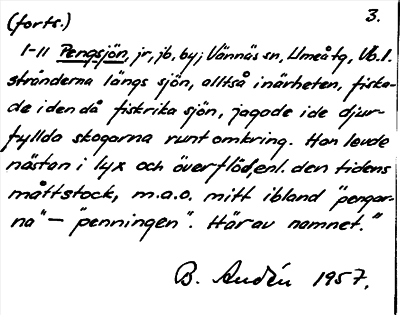 (forts.) 3.
1-11 Pengsjön, jr, jb, by; Vännäs sn, Umeå tg, Vb. l.
stränderna längs sjön, alltså inärheten, fiska-
de iden då fiskrika sjön, jagade ide djur-
fyllda skogarna runt omkring. Han levde
nästan i lyx och överflöd, enl. den tidens
måttstock, m.a.o. mitt ibland "pengar-
na" – "penningen". Härav namnet."
B. Audén 1957.